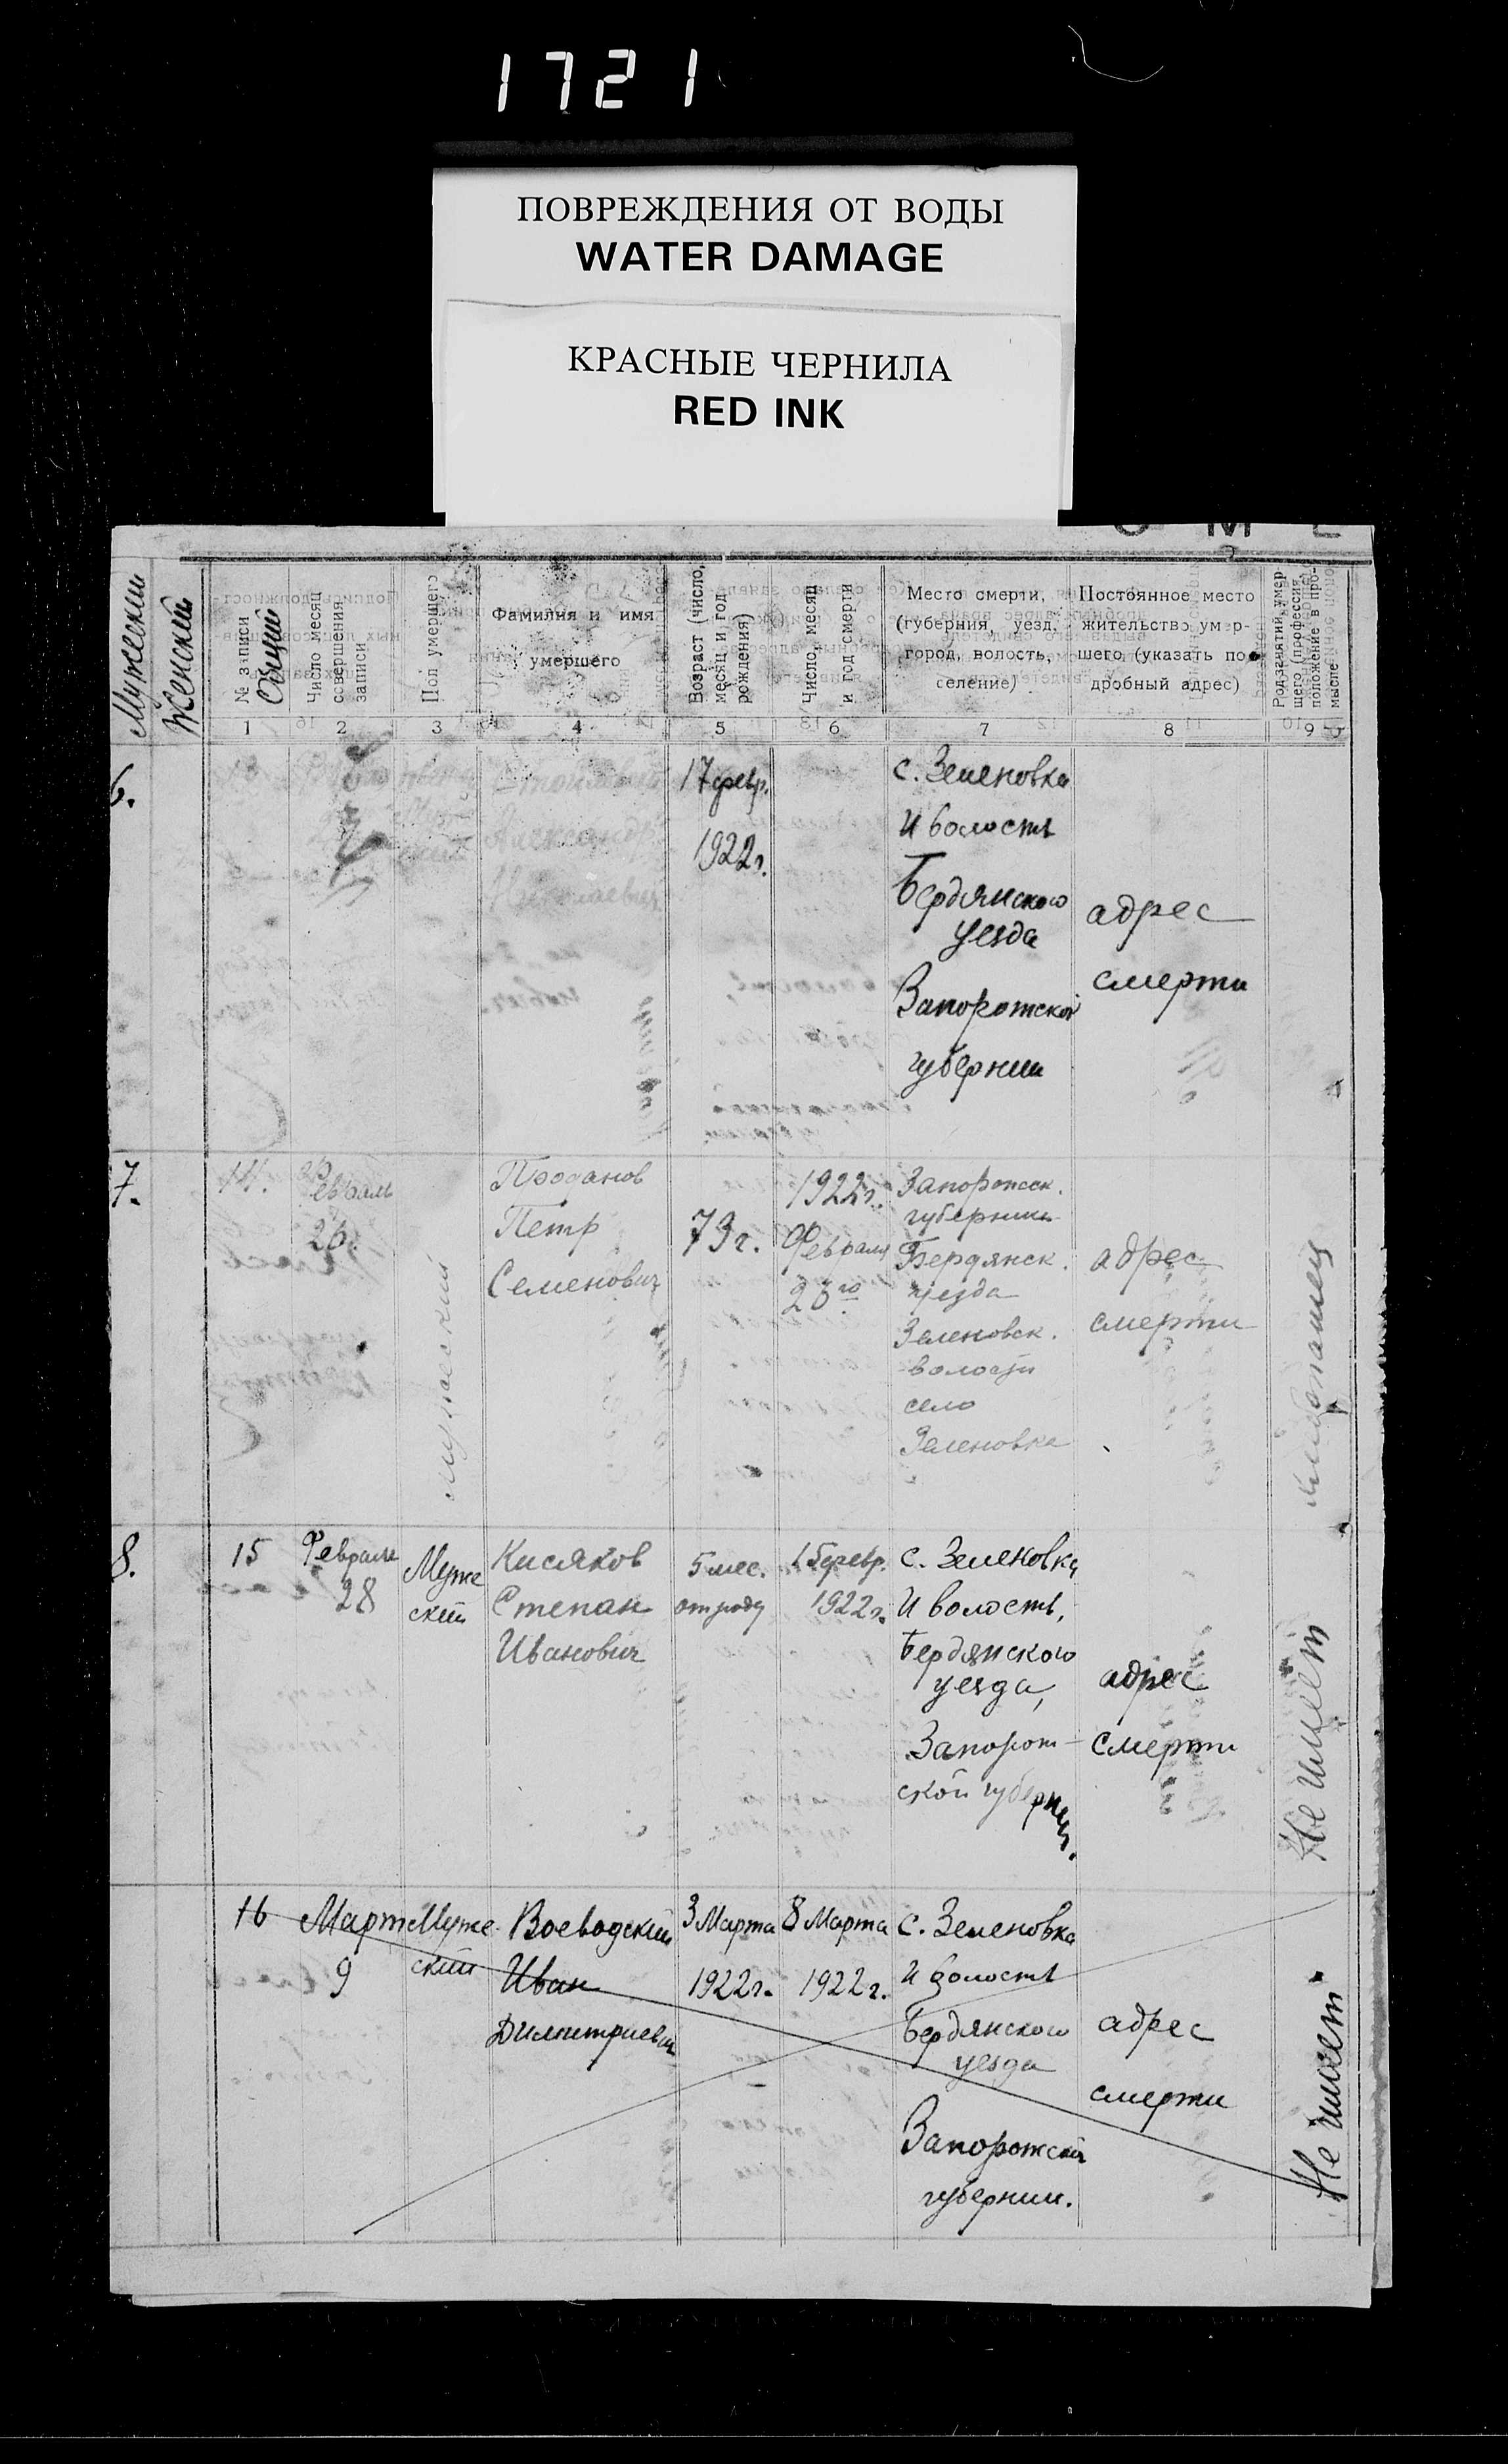 1721
ПОВРЕЖДЕНИЯ ОТ ВОДЫ
WATER DAMAGE
КРАСНЫЕ ЧЕРНИЛА
RED INK
Мужеский
Женский
№ записи
Общий
Число месяц
совершения
записи
Пол умершего
Фамилия и имя
умершего
Возраст (число,
месяц и год
рождения)
Число, месяц
и год смерти
Место смерти,
(губерния, уезд,
город, волость,
селение)
Постоянное место
жительство умер-
шего (указать по-
дробный адрес)
Род занятий умер
шего (профессия
положение в про-
мысле
1 2 3 4 5 6 7 8 9
6.
Александр
Николаевич
17 февр.
1922г.
с. Зеленовка
И волость
Бердянского
уезда
Запорожской
губернии
адрес
смерти
7.
14.
Февраль
26.
мужеский
Проданов
Петр
Семенович
73г.
1922г.
Февраля
Запорожск.
губернии
Бердянск.
уезда
Зеленовск.
волости
село
Зеленовка
адрес
смерти
8.
15
Февраля
28
Муже
ский
Кисяков
Степан
Иванович
5 мес.
от роду
15 февр.
1922г.
с. Зеленовка
И волость,
Бердянского
уезда,
Запорож-
ской губернии.
адрес
смерти
Не имеет
16
Март
9
Муже
ский
Воеводский
Иван
Димитриевич
3 Марта
1922г.
8 Марта
1922г.
с. Зеленовка
И волость
Бердянского
уезда
Запорожской
губернии.
адрес
смерти
Не имеет